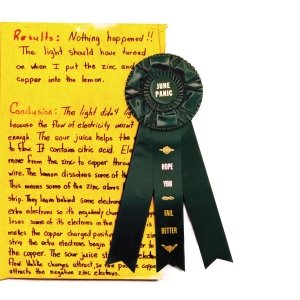 Results: Nothing happened!!
The light should have turned
on when I put the zinc and
copper into the lemon.
Conclusion: The light didn't
because the flow of electricity wasn't
enough. The sour juice helps the
to flow. It contains citric acid.
move from the zinc to copper through
wire. The lemon dissolves some of the
This means some of the zinc atoms
strip. They leave behind some electrons
extra electrons so its negatively charged
loses some of its electrons in the
makes the copper charged positive
strip the extra electrons begin
the copper. The sour juice
flow. Unlike charges attract, so the
attracts the negative zinc electrons.
JUNE
PANIC
HOPE
YOU
FAIL
BETTER